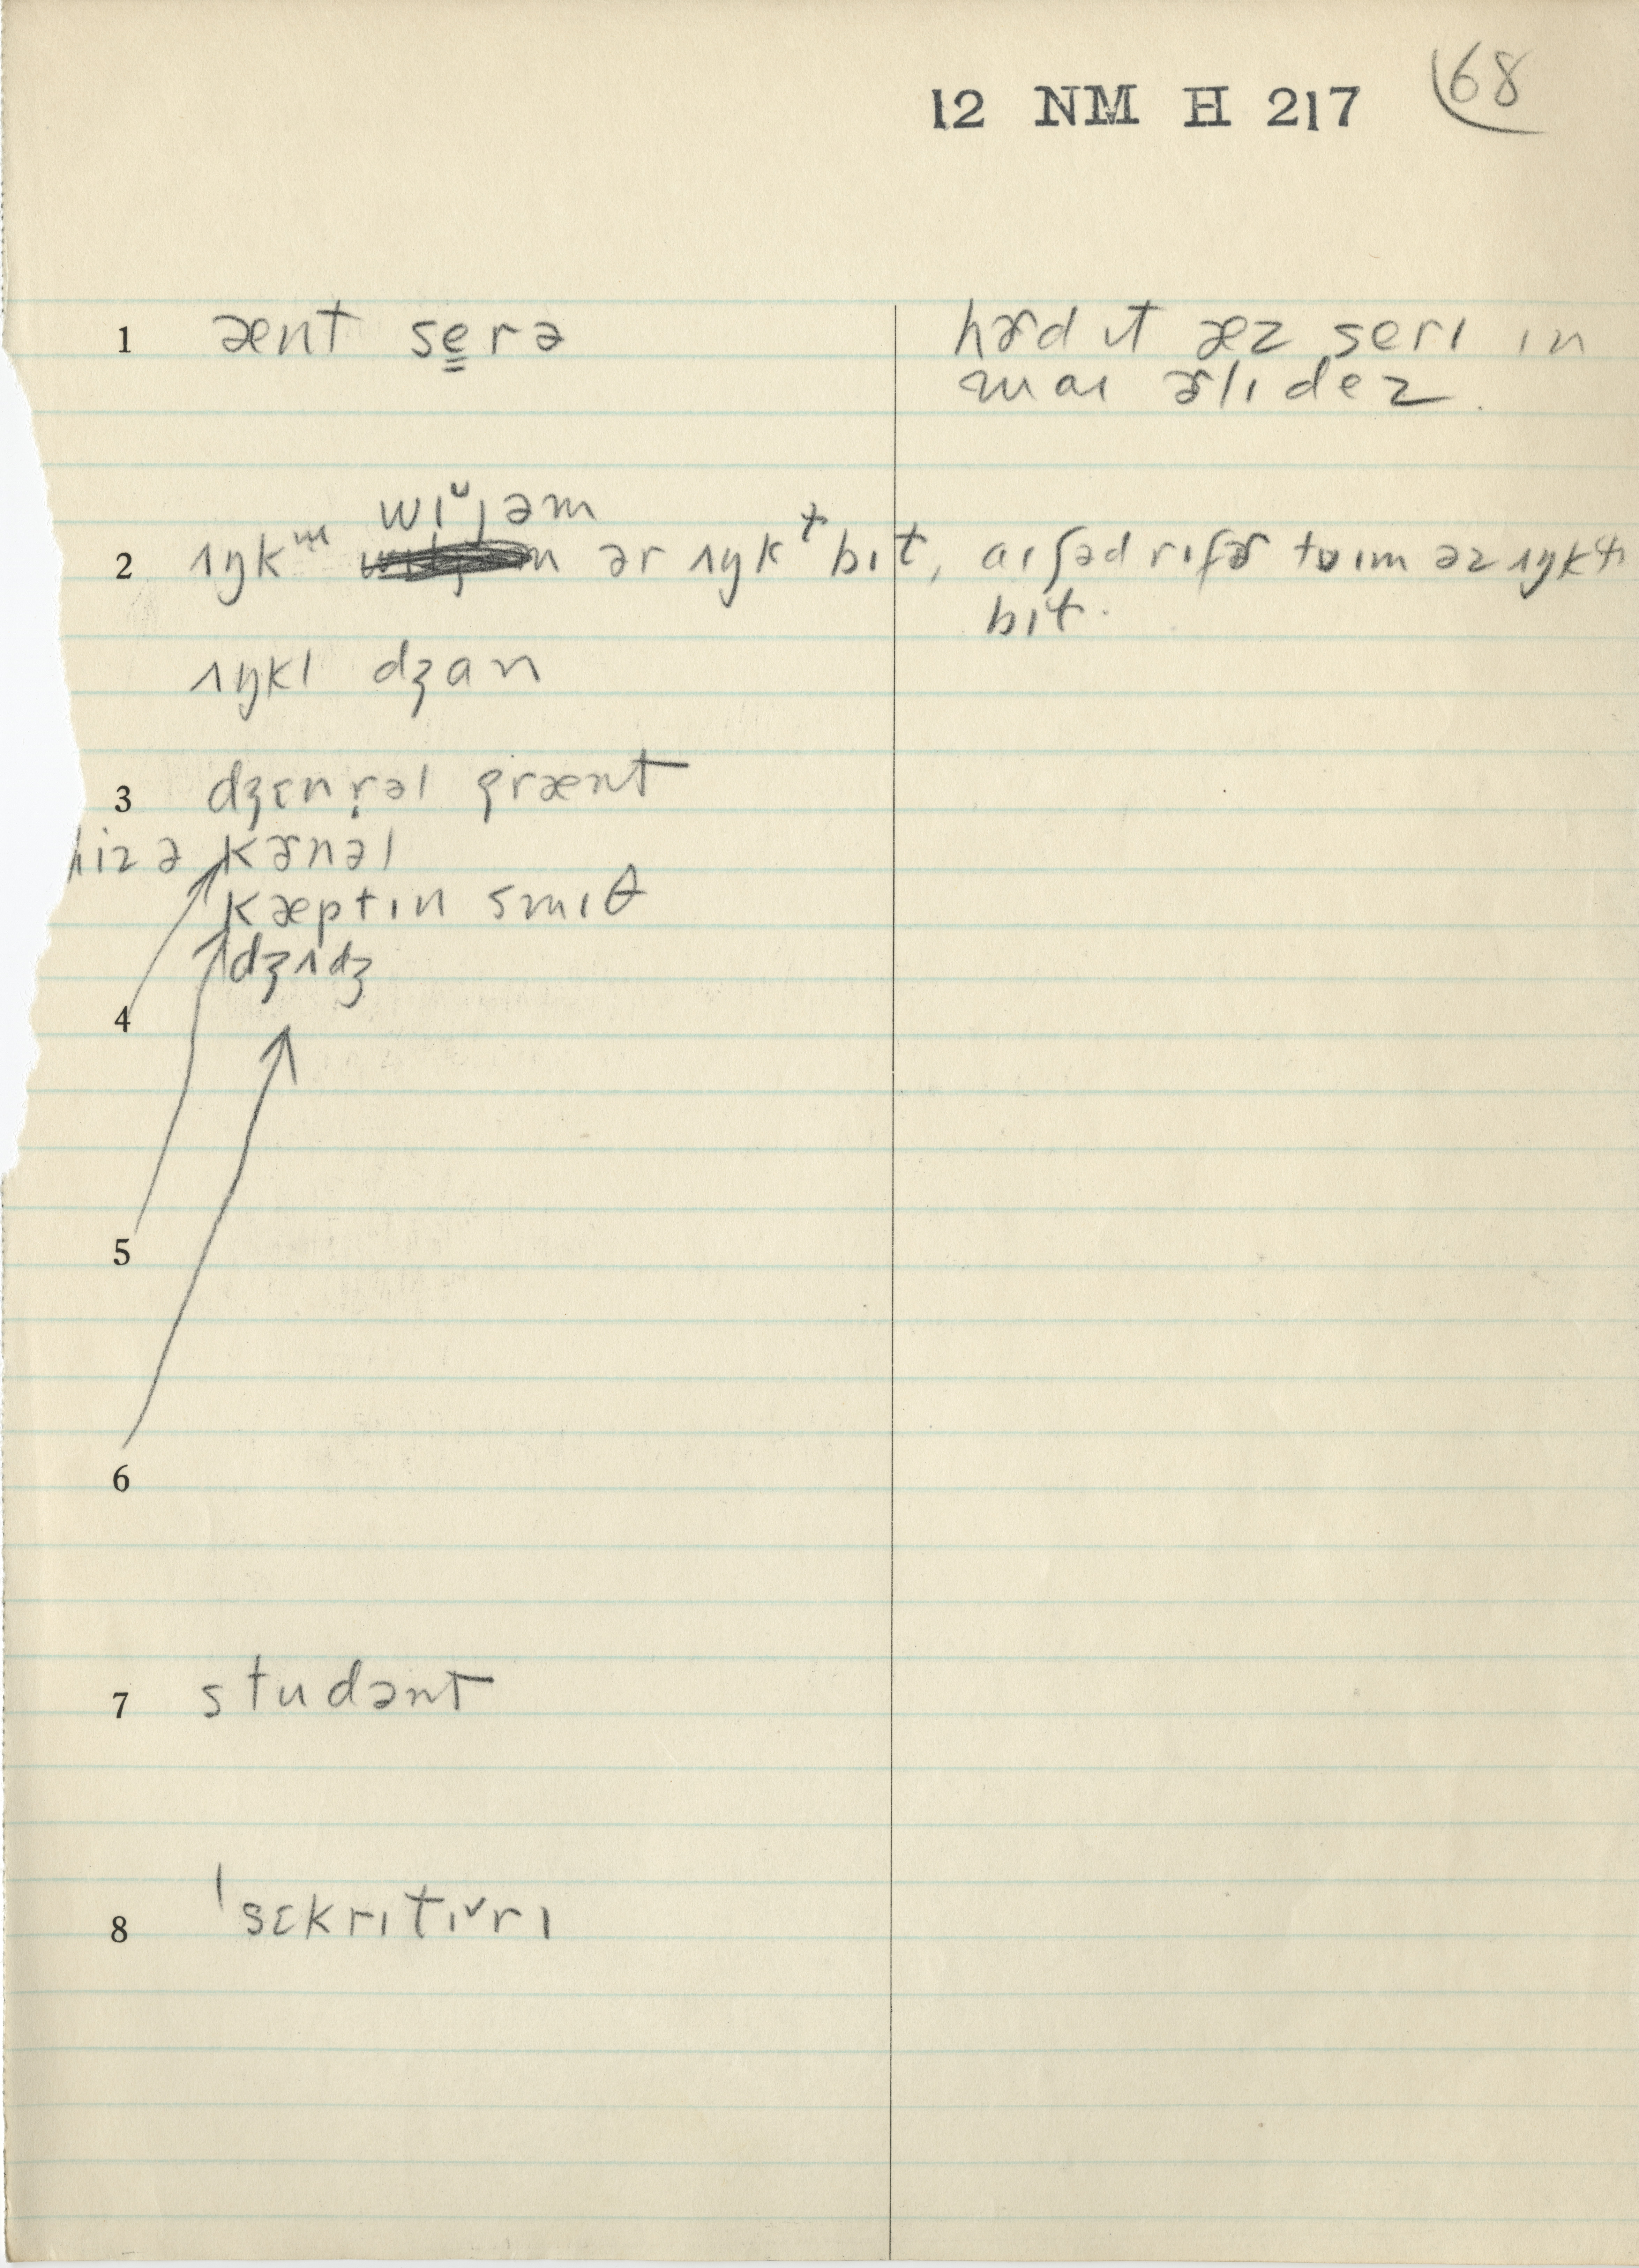 12 NM H 217 68
1 ænt se̳rə hɚd ɪt æz serɪ ɪn
maɪ ɚlɪ dez.
wɪᵕjəm
2 ʌŋkᵚ ər ʌŋkᵗbɪt, aɪ ʃəd rɪfɚ tʊ ɪm əz ʌŋkɬ
bɪt.
ʌŋkl dʒan
3 dʒɛnr̩əl grænt
hiz ə kɚnəl
kæptɪn smɪθ
dʒʌdʒ
4
5
6
7 studənt
8 ˈsɛkrɪtɪᵛrɪ